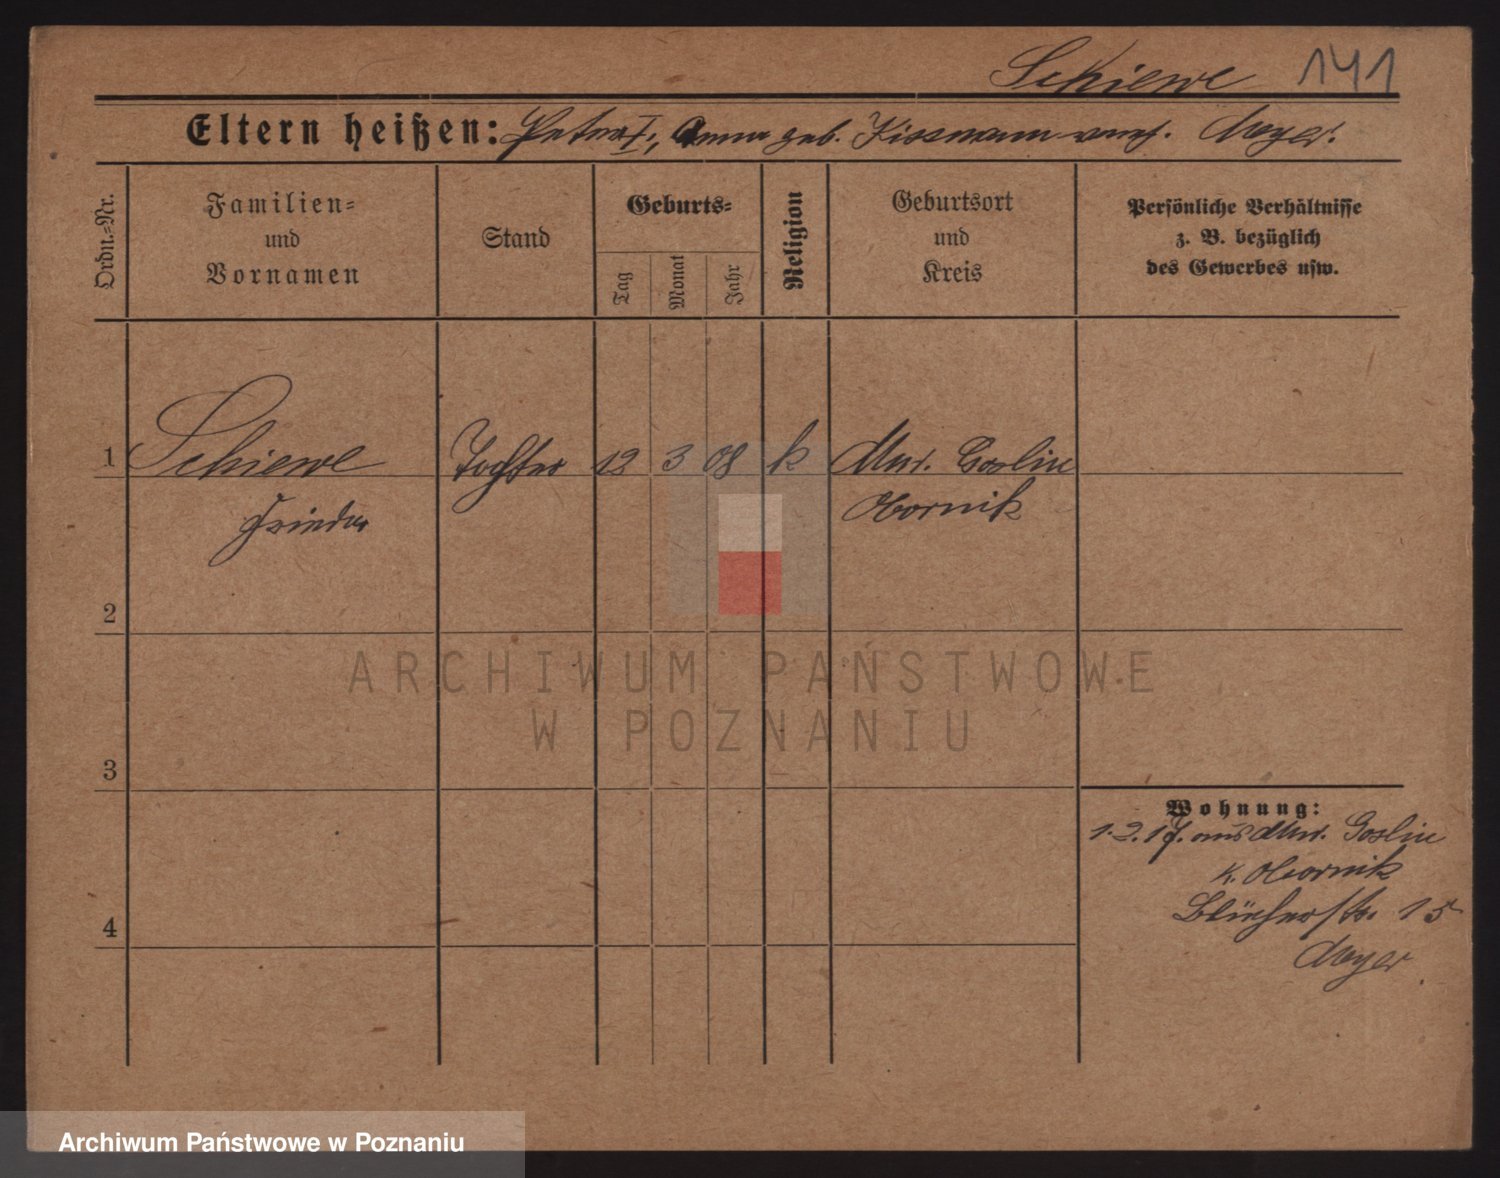 Schiewe 141
Eltern heißen: Peter I, Anna geb. Kissmann verh. Meyer.
Ordn.=Nr.
Familien=
und
Vornamen
Stand
Geburts=
Tag
Monat
Jahr
Religion
Geburtsort
und
Kreis
Persönliche Verhältnisse
z. B. bezüglich
des Gewerbes usw.
1 Schiewe Tochter 12 3 08 k Mur. Goslin
Frieda Obornik
2
3
4
Wohnung:
1.2.17. aus Mur. Goslin
K. Obornik
Blücherstr. 15
Meyer
ARCHIWUM PAŃSTWOWE
W POZNANIU
Archiwum Państwowe w Poznaniu